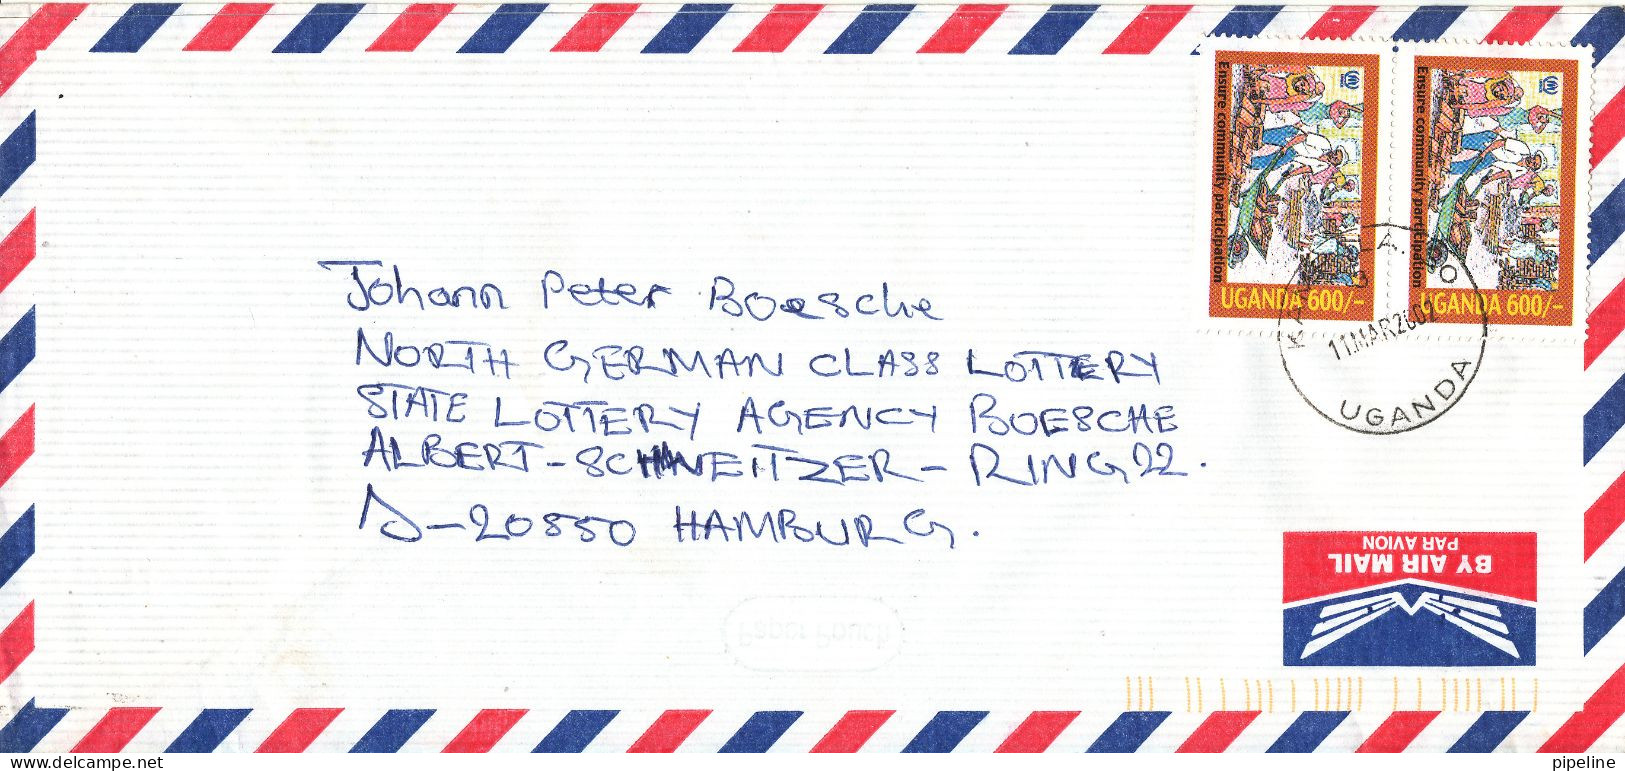 Ensure community participation
UGANDA 600/-
Ensure community participation
UGANDA 600/-
11.MAR2002
UGANDA
Johann Peter Boesche
NORTH GERMAN CLASS LOTTERY
STATE LOTTERY AGENCY BOESCHE
ALBERT-SCHNEITZER-RING 22.
D-20550 HAMBURG.
BY AIR MAIL
PAR AVION
Paper Pouch
www.delcampe.net
pipeline